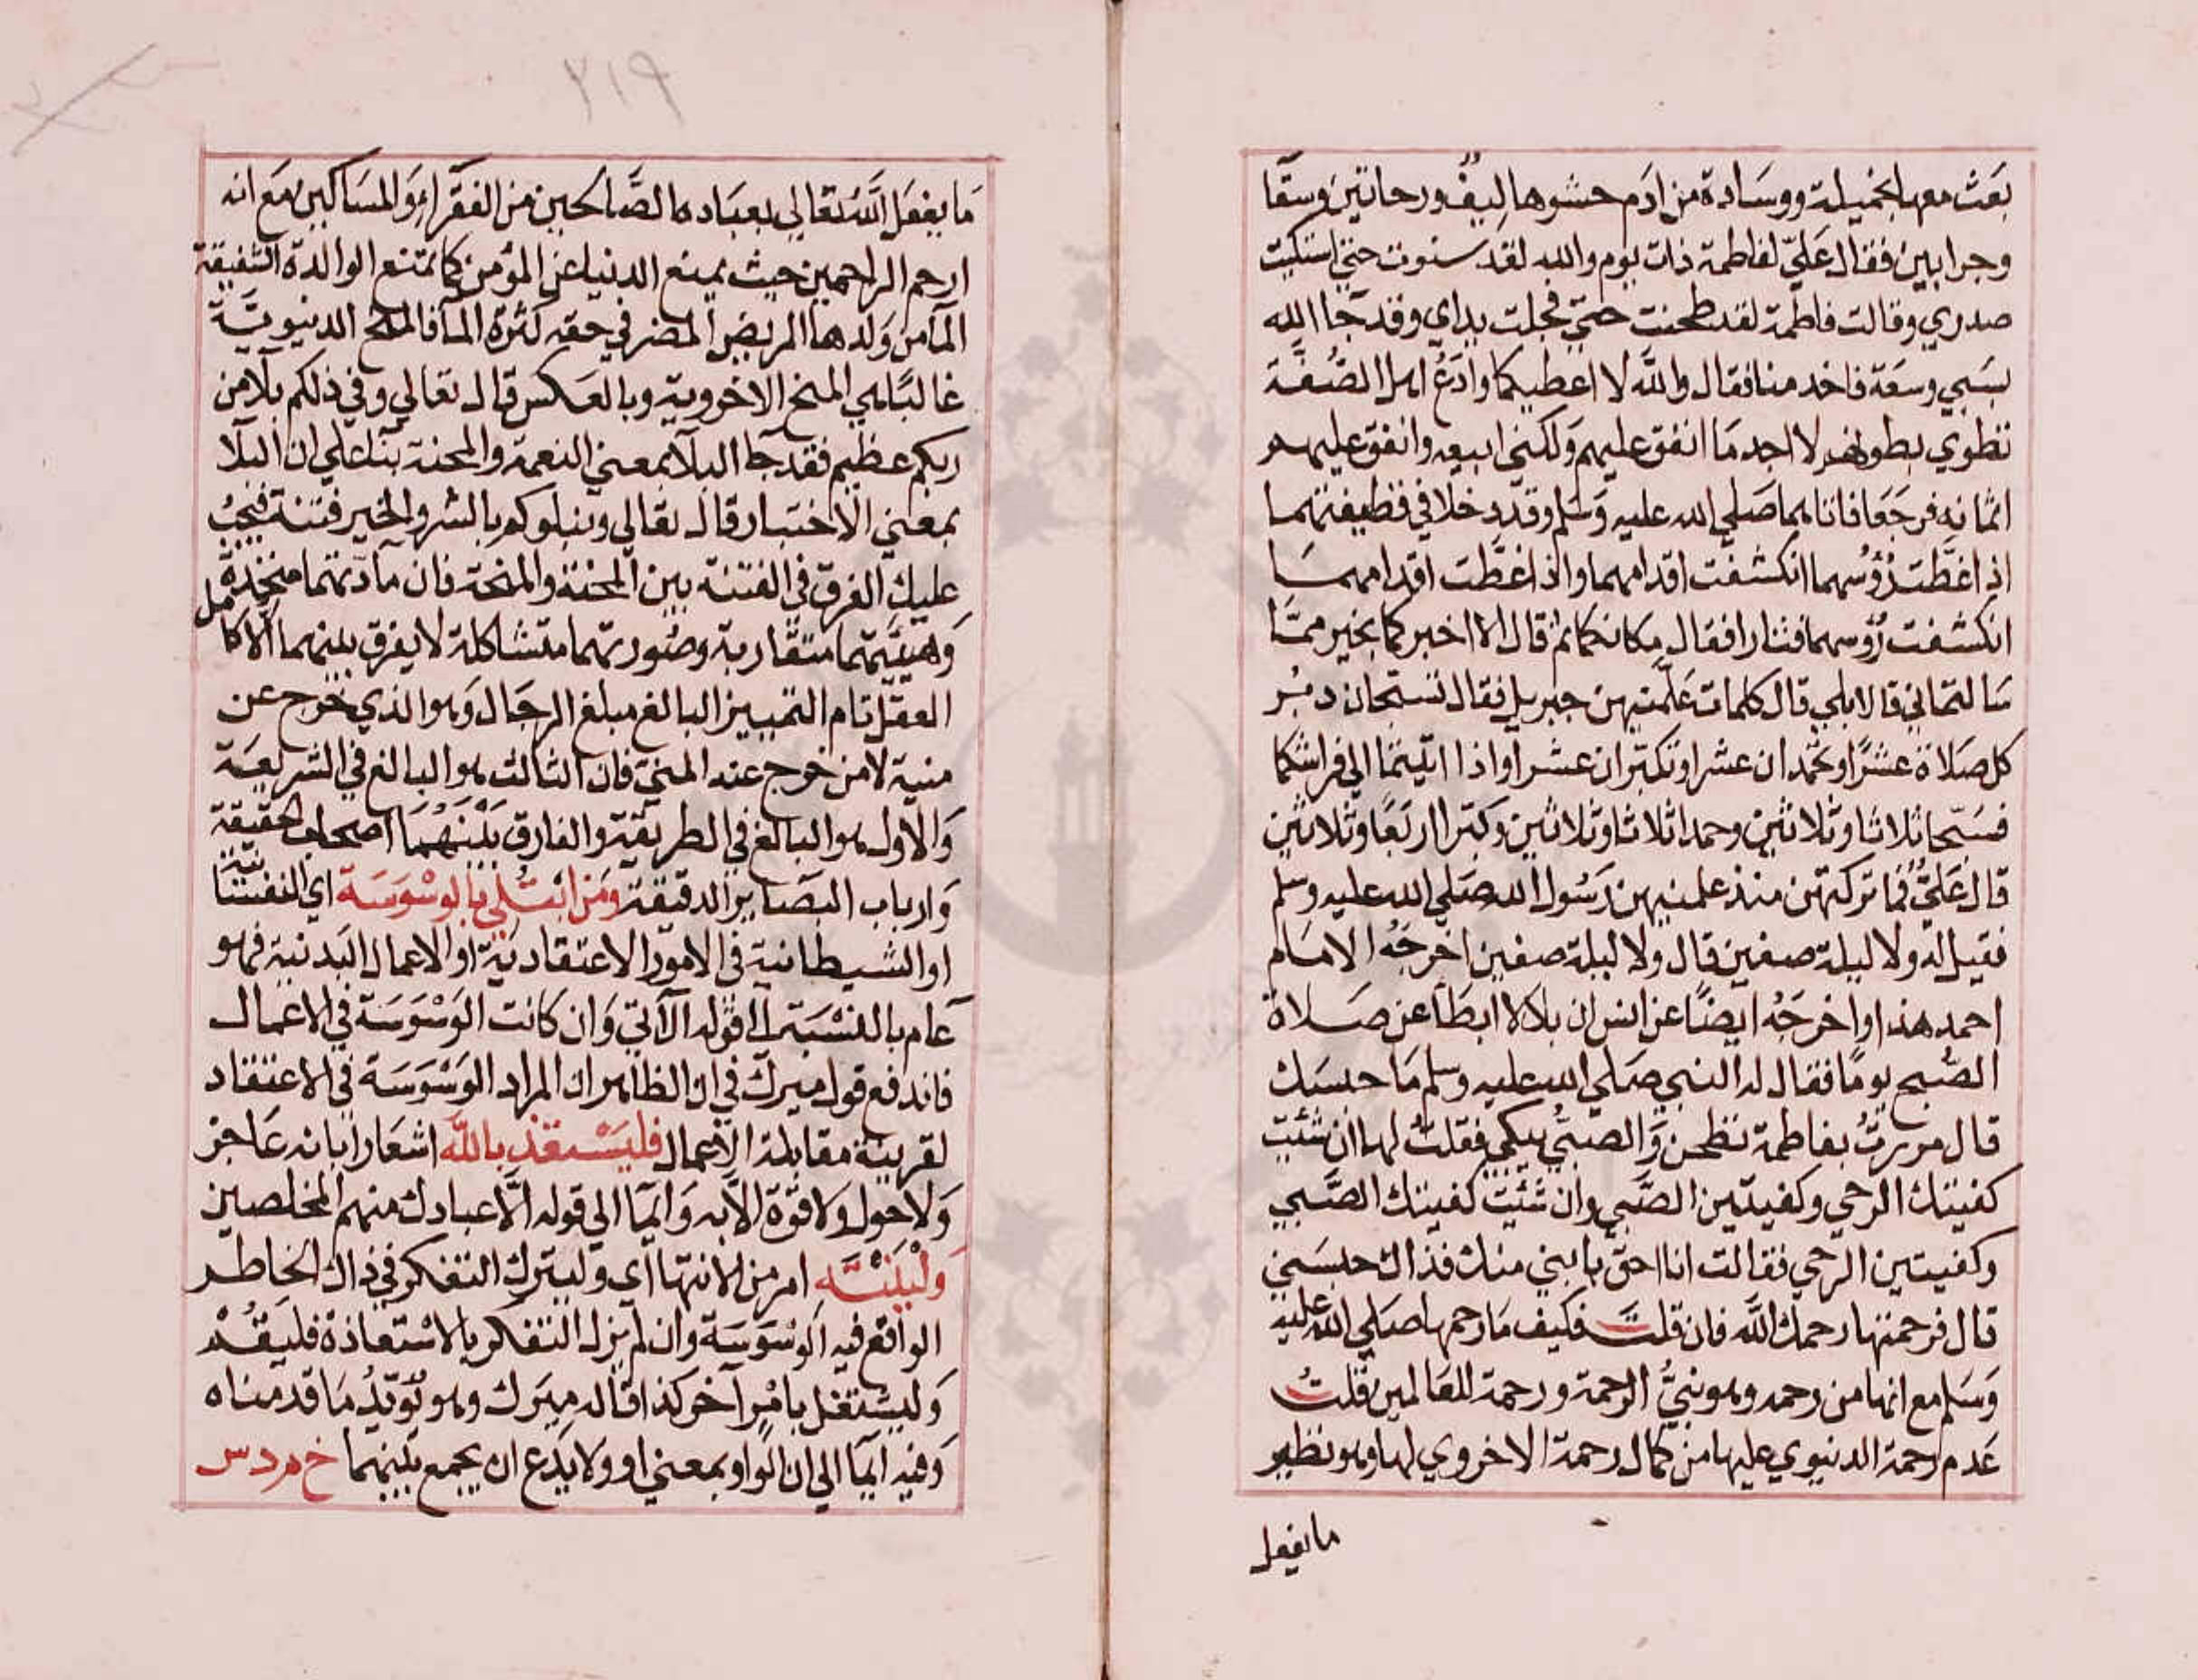 بعث معها بخميلة ووسادة من ادم حشوها ليف ورحاتين وسقا
وجرابين فقال علي لفاطمة ذات يوم والله لقد سنوت حتي اشتكيت
صدري وقالت فاطمة لقد طحنت حتي مجلت يداي وقد جا الله
بسبي وسعة فاخدمنا فقال والله لا اعطيكما وادع اهل الصفة
تطوي بطونهم لا اجد ما انفق عليهم ولكني ابيعه وانفق عليهم
اثمانه فرجعا فاتاهما صلي الله عليه وسلم وقد دخلا في قطيفتهما
اذا غطت رؤسهما انكشفت اقدامهما واذا غطت اقدامهما
انكشفت رؤسهما فثارا فقال مكانكما ثم قال الا اخبركما بخير مما
سالتماني قالا بلي قال كلمات علمنيهن جبريل فقال تسبحان دبر
كل صلاة عشرا وتحمدان عشرا وتكبران عشرا واذا اتيتما الي فراشكما
فسبحا ثلاثا وثلاثين وحمدا ثلاثا وثلاثين وكبرا اربعا وثلاثين
قال علي فما تركتهن منذ علمنيهن رسول الله صلي الله عليه وسلم
فقيل له ولا ليلة صفين قال ولا ليلة صفين اخرجه الامام
احمد هذا واخرجه ايضا عن انس ان بلالا ابطا عن صلاة
الصبح يوما فقال له النبي صلي الله عليه وسلم ما حبسك
قال مررت بفاطمة تطحن والصبي يبكي فقلت لها ان شئت
كفيتك الرحي وكفيتين الصبي وان شئت كفيتك الصبي
وكفيتين الرحي فقالت انا احق بابني منك فذاك حبسني
قال فرحمتها رحمك الله فان قلت فكيف مارحمها صلي الله عليه
وسلم مع انها من رحمه وهو نبي الرحمة ورحمة للعالمين قلت
عدم رحمة الدنيوي عليها من كمال رحمة الاخروي لها وهو نظير
مايفعل
٢١٩
ما يفعل الله تعالي بعباده الصالحين من الفقراء والمساكين مع انه
ارحم الراحمين حيث يمنع الدنيا عن المؤمن كما تمنع الوالدة الشفيقة
الما من ولدها المريض المضر في حقه كثرة الما فالمنح الدنيوية
غالبا هي المنح الاخروية وبالعكس قال تعالي وفي ذلكم بلا من
ربكم عظيم فقد جا البلا بمعني النعمة والمحنة بنا علي ان البلا
بمعني الاختبار قال تعالي ونبلوكم بالشر والخير فتنة فيجب
عليك الفرق في الفتنة بين المحنة والمنحة فان مادتهما متحدة
وهيئتهما متقاربة وصورتهما متشاكلة لا يفرق بينهما الا كامل
العقل تام التمييز البالغ مبلغ الرجال وهو الذي خرج عن
منية لا من خرج عنه المني فان الثالث هو البالغ في الشريعة
والاول هو البالغ في الطريقة والفارق بينهما اصحاب الحقيقة
وارباب البصاير الدقيقة ومن ابتلي بالوسوسة اي النفسانية
او الشيطانية في الامور الاعتقادية او الاعمال البدنية فهو
عام بالنسبة الي قوله الاتي وان كانت الوسوسة في الاعمال
فاندفع قول ميرك في ان الظاهر ان المراد الوسوسة في الاعتقاد
لقرينة مقابلة الاعمال فليستعذ بالله اشعارا بانه عاجز
ولا حول ولا قوة الا به وايما الي قوله الا عبادك منهم المخلصين
ولينته امر من الانتها اي وليترك التفكر في ذاك الخاطر
الواقع فيه الوسوسة وان لم يزل التفكر بالاستعاذة فليقم
وليشتغل بامر آخر كذا قاله ميرك وهو يؤيد ما قدمناه
وفيه ايما الي ان الواو بمعني او ولا يدع ان يجمع بينهما خ م د س